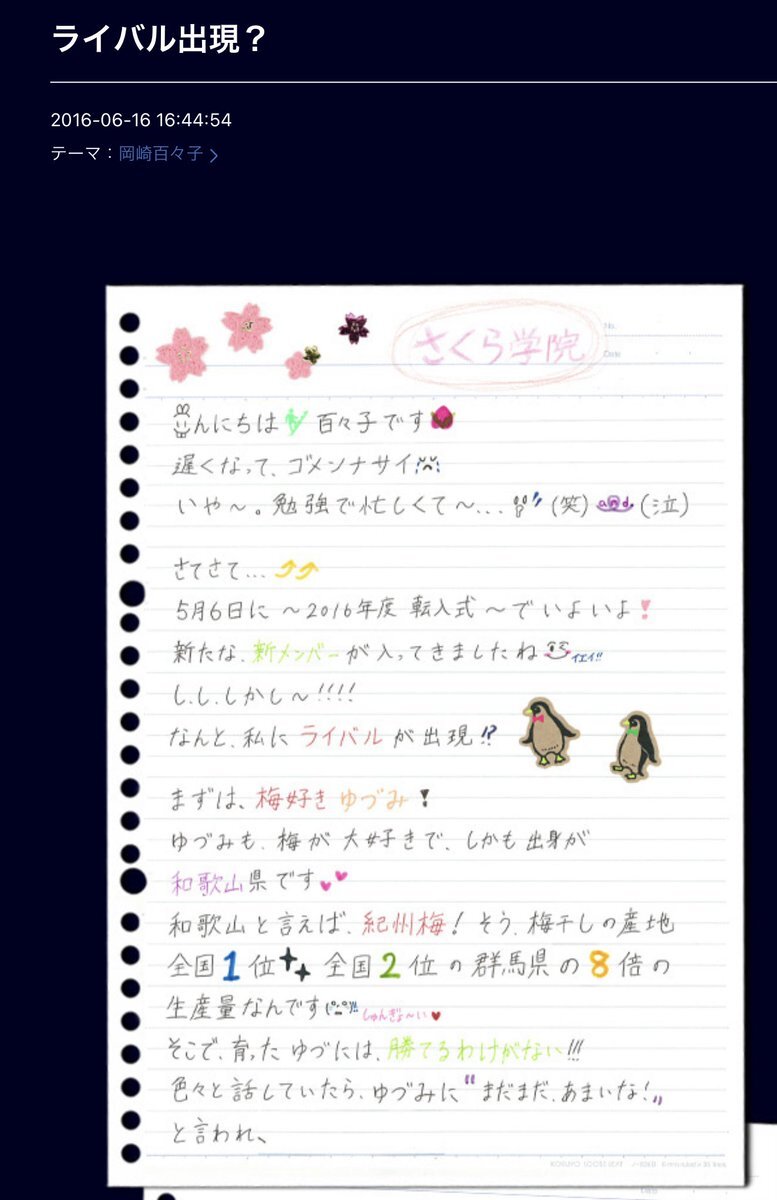 ライバル出現？
2016-06-16 16:44:54
テーマ：岡崎百々子
さくら学院
No.
Date
こんにちは 百々子です
遅くなって、ゴメンナサイ
いや〜。勉強で忙しくて〜... (笑) and (泣)
さてさて...
5月6日に 〜2016年度 転入式〜でいよいよ
新たな、新メンバーが入ってきましたね イエイ!!
し、し、しかし〜!!!!
なんと、私に ライバル が出現!?
まずは、梅好き ゆづみ!
ゆづみも、梅が 大好きで、しかも 出身が
和歌山県です
和歌山と言えば、紀州梅! そう、梅干しの産地
全国1位 全国2位の群馬県の8倍の
生産量なんです しゅんぎょ〜い
そこで、育った ゆづには、勝てるわけがない!!!
色々と話していたら、ゆづみに "まだまだ、あまいな!"
と言われ、